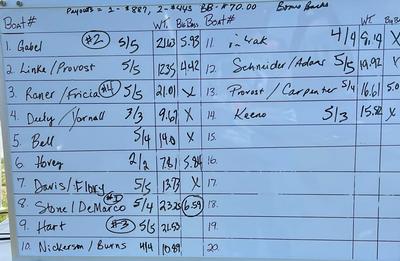 Payouts = 1 - $887, 2 - $443 BB - $70.00 Bonus Bucks
Boat # WT. Big Bass Boat # WT Big
1. Gabel #2 5/5 21.63 5.93 11. 4/4 8.19 X
2. Linke/Provost 5/5 12.35 4.42 12. Schneider/Adams 5/5 19.92
3. Raner/Fricia #4 5/5 21.01 X 13. Provost/Carpenter 5/4 16.61 5.0
4. 3/3 9.67 X 14. Keeno 5/3 15.82 X
5. Bell 5/4 14.0 X 15.
6. Hovey 2/2 7.81 5.84 16.
7. Davis/Flory 5/5 13.93 X 17.
8. Stone/DeMarco #1 5/4 23.25 6.59 18.
9. Hart #3 5/5 21.53 19.
10. Nickerson/Burns 4/4 10.89 20.